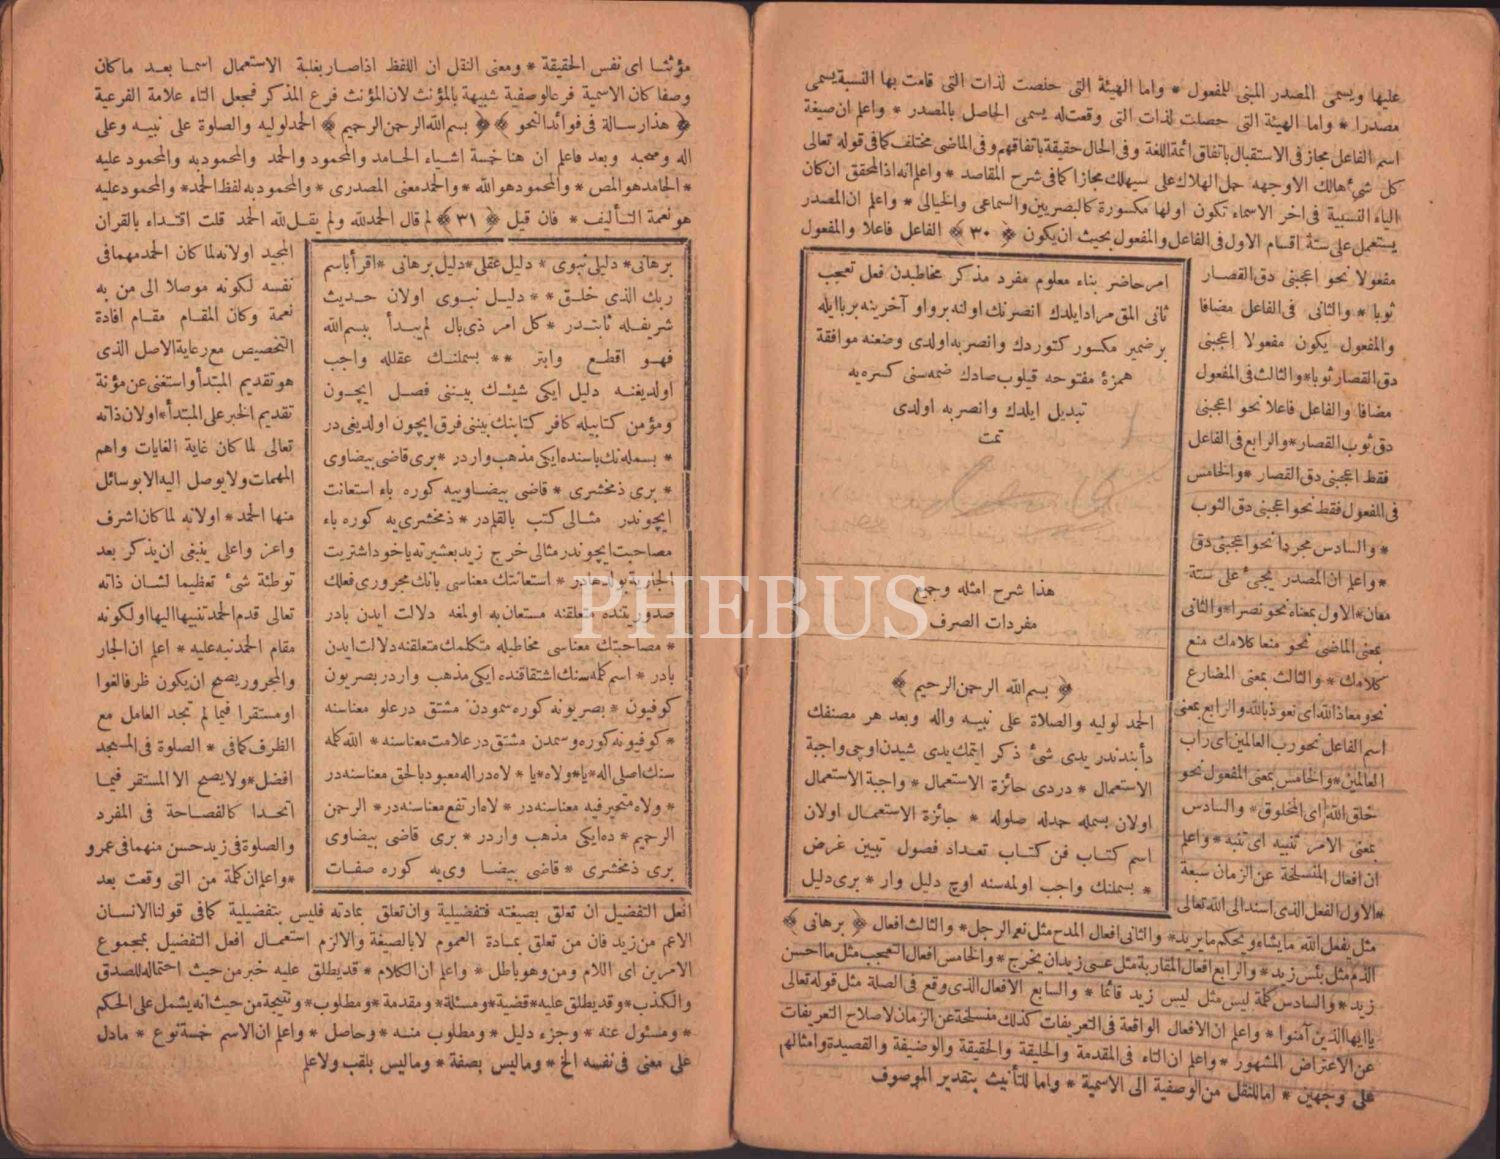 عليها ويسمى المصدر المبنى للمفعول * واما الهيئة التى حلصت لذات التى قامت بها النسبة يسمى
مصدرا * واما الهيئة التى حصلت لذات التى وقعت له يسمى الحاصل بالمصدر * واعلم ان صيغة
اسم الفاعل مجاز فى الاستقبال باتفاق ائمة اللغة وفى الحال حقيقة باتفاقهم وفى الماضى مختلف كما فى قوله تعالى
كل شئ هالك الا وجهه حمل الهلاك على سيهلك مجازا كما فى شرح المقاصد * واعلم انه اذا المحقق ان كان
الياء النسبية فى اخر الاسماء تكون اولها مكسورة كالبصريين والسماعى والخيالى * واعلم ان المصدر
يستعمل على ستة اقسام الاول فى الفاعل والمفعول بحيث ان يكون ﴿ ٣٠ ﴾ الفاعل فاعلا والمفعول
مفعولا نحو اعجبنى دق القصار
ثوبا * والثانى فى الفاعل مضافا
والمفعول يكون مفعولا اعجبنى
دق القصار ثوبا * والثالث فى المفعول
مضافا والفاعل فاعلا نحو اعجبنى
دق ثوب القصار * والرابع فى الفاعل
فقط اعجبنى دق القصار * والخامس
فى المفعول فقط نحو اعجبنى دق الثوب
* والسادس مجردا نحو اعجبنى دق
* واعلم ان المصدر يجئ على ستة
معان * الاول بمعناه نحو نصرا * والثانى
بمعنى الماضى نحو منعا كلامك منع
كلامك * والثالث بمعنى المضارع
نحو معاذ الله اى نعوذ بالله والرابع بمعنى
اسم الفاعل نحو رب العالمين اى راب
العالمين * والخامس بمعنى المفعول نحو
خلق الله اى المخلوق * والسادس
بمعنى الامر تنبيه اى تنبه * واعلم
ان افعال المنسلخة عن الزمان سبعة
* الاول الفعل الذى اسند الى الله تعالى
امر حاضر بناء معلوم مفرد مذكر مخاطبدن فعل تعجب
ثانى المق مراد ايلدك انصرنك اولنه بر واو آخرينه بر با ايله
بر ضمير مكسور كتوردك وانصر به اولدى وضعنه موافقة
همزۀ مفتوحه قيلوب صادك ضمه سنى كسره يه
تبديل ايلدك وانصر به اولدى
تمت
هذا شرح امثله وجميع
مفردات الصرف
﴿ بسم الله الرحمن الرحيم ﴾
الحمد لوليه والصلاة على نبيه واله وبعد هر مصنفك
دأبندندر يدى شئ ذكر ايتمك يدى شيدن اوچى واجبة
الاستعمال * دردى جائزة الاستعمال * واجبة الاستعمال
اولان بسمله حمدله صلوله * جائزة الاستعمال اولان
اسم كتاب فن كتاب تعداد فصول تبيين غرض
* بسملنك واجب اولمه سنه اوچ دليل وار * برى دليل
مثل يفعل الله ما يشاء ويحكم ما يريد * والثانى افعال المدح مثل نعم الرجل * والثالث افعال ﴿ برهانى ﴾
الذم مثل بئس زيد * والرابع افعال المقاربة مثل عسى زيد ان يخرج * والخامس افعال التعجب مثل ما احسن
زيد * والسادس كلمة ليس مثل ليس زيد قائما * والسابع الافعال الذى وقع فى الصلة مثل قوله تعالى
يا ايها الذين آمنوا * واعلم ان الافعال الواقعة فى التعريفات كذلك منسلخة عن الزمان لاصلاح التعريفات
عن الاعتراض المشهور * واعلم ان التاء فى المقدمة والخليقة والحقيقة والوضيفة والقصيدة وامثالهم
على وجهين * اما للنقل من الوصفية الى الاسمية * واما للتأنيث بتقدير الموصوف
مؤنثا اى نفس الحقيقة * ومعنى النقل ان اللفظ اذا صار بغلبة الاستعمال اسما بعد ما كان
وصفا كان الاسمية فرعا لوصفية شبيهة بالمؤنث لان المؤنث فرع المذكر فجعل التاء علامة الفرعية
﴿ هذا رسالة فى فوائد النحو ﴾ ﴿ بسم الله الرحمن الرحيم ﴾ الحمد لوليه والصلوة على نبيه وعلى
اله وصحبه وبعد فاعلم ان هنا خمسة اشياء الحامد والمحمود والحمد والمحمود به والمحمود عليه
* الحامد هو المص * والمحمود هو الله * والحمد معنى المصدرى * والمحمود به لفظ الحمد * والمحمود عليه
هو نعمة التأليف * فان قيل ﴿ ٣١ ﴾ لم قال الحمد لله ولم يقل لله الحمد قلت اقتداء بالقرآن
المجيد اولانه لما كان الحمد مهما فى
نفسه لكونه موصلا الى من به
نعمة وكان المقام مقام افادة
التخصيص مع رعاية الاصل الذى
هو تقديم المبتدأ واستغنى عن مؤنة
تقديم الخبر على المبتدأ * اولان ذاته
تعالى لما كان غاية الغايات واهم
المهمات ولا يوصل اليه الا بوسائل
منها الحمد * اولانه لما كان اشرف
واعز واعلى ينبغى ان يذكر بعد
توطئة شئ تعظيما لشان ذاته
تعالى قدم الحمد تنبيها اليها او لكونه
مقام الحمد نبه عليه * اعلم ان الجار
والمجرور يصح ان يكون ظرفا لغوا
او مستقرا فيما لم تجد العامل مع
الظرف كما فى * الصلوة فى المسجد
افضل * ولا يصح الا المستقر فيما
اتحدا كالفصاحة فى المفرد
والصلوة فى زيد حسن منهما فى عمرو
* واعلم ان كلمة من التى وقعت بعد
برهانى * دليلى نبوى * دليل عقلى * دليل برهانى * اقرأ باسم
ربك الذى خلق * * دليل نبوى اولان حديث
شريفله ثابتدر * كل امر ذى بال لم يبدأ ببسم الله
فهو اقطع وابتر * * بسملنك عقلله واجب
اولديغنه دليل ايكى شيئك بيننى فصل ايچون
ومؤمن كتابيله كافر كتابنك بيننى فرق ايچون اولديغى در
* بسمله نك باسنده ايكى مذهب واردر * برى قاضى بيضاوى
* برى زمخشرى * قاضى بيضاويه كوره باء استعانت
ايچوندر مثالى كتب بالقلم در * زمخشرى يه كوره باء
مصاحبت ايچوندر مثالى خرج زيد بعشيرته ياخود اشتريت
الجارية بولدها در * استعانتك معناسى بانك مجرورى فعلك
صدورينده متعلقنه مستعان به اولمغه دلالت ايدن بادر
* مصاحبتك معناسى مخاطبله متكلمك متعلقنه دلالت ايدن
بادر * اسم كلمه سنك اشتقاقنده ايكى مذهب واردر بصريون
كوفيون * بصريونه كوره سمودن مشتق در علو معناسنه
* كوفيونه كوره وسمدن مشتق در علامت معناسنه * الله كلمه
سنك اصلى اله * يا * ولاه * يا * لاه در اله معبود بالحق معناسنه در
* ولاه متحير فيه معناسنه در * لاه ارتفع معناسنه در * الرحمن
الرحيم * ده ايكى مذهب واردر * برى قاضى بيضاوى
برى زمخشرى * قاضى بيضا وى يه كوره صفات
افعل التفضيل ان تعلق بصيغته فتفضيلية وان تعلق بمادته فليس بتفضيلية كما فى قولنا الانسان
الاعم من زيد فان من تعلق بمادة العموم لا بالصيغة والالزم استعمال افعل التفضيل بمجموع
الامرين اى اللام ومن وهو باطل * واعلم ان الكلام * قد يطلق عليه خبر من حيث احتماله للصدق
والكذب * وقد يطلق عليه * قضية * ومسئلة * ومقدمة * ومطلوب * ونتيجة من حيث انه يشمل على الحكم
* ومسئول عنه * وجزء دليل * ومطلوب منه * وحاصل * واعلم ان الاسم خمسة نوع * مادل
على معنى فى نفسه الخ * وما ليس بصفة * وما ليس بلقب ولا علم
PHEBUS